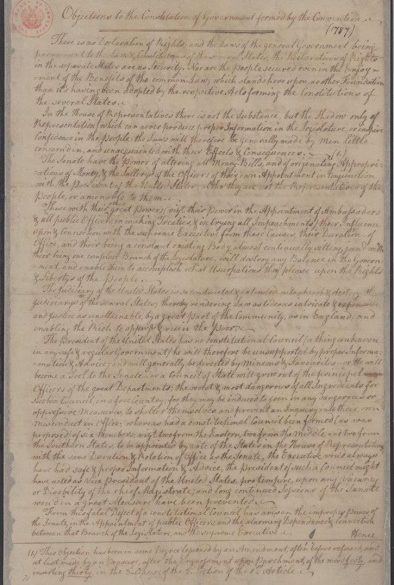 Objections to the Constitution of Government formed by the Convention.
(1787)
There is no Declaration of Rights, and the Laws of the general Government being
paramount to the Laws & Constitutions of the several States, the Declarations of Rights
in the separate States are no Security. Nor are the People secured even in the Enjoy-
ment of the Benefits of the common Law, which stands here upon no other Foundation
than its having been adopted by the respective Acts forming the Constitutions of
the several States.
In the House of Representatives there is not the Substance, but the Shadow only of
Representation; which can never produce proper Information in the Legislature, or inspire
Confidence in the People; the Laws will therefore be generally made by Men little
concern'd in, and unacquainted with their Effects & Consequences.
The Senate have the Power of altering all Money-Bills, and of originating Appropri-
ations of Money, & the Sallerys of the Officers of their own Appointment in Conjunction
with the President of the United States; altho' they are not the Representatives of the
People, or amenable to them.
These with their other great Powers (vizt. their Power in the Appointment of Ambassadors
& all public Officers, in making Treaties, & in trying all Impeachments) their Influence
upon & Connection with the supreme Executive from these Causes, their Duration of
Office, and their being a constant existing Body almost continually sitting, joined with
their being one compleat Branch of the Legislature, will destroy any Balance in the Govern-
ment, and enable them to accomplish what Usurpations they please upon the Rights
& Liberties of the People.
The Judiciary of the United States is so constructed & extended, as to absorb & destroy the
Judiciarys of the several States; thereby rendering Law as tedious, intricate &
and Justice as unattainable, by a great part of the Community, as in England, and
enabling the Rich to oppress & ruin the Poor.
The President of the United States has no constitutional Council (a thing unknown
in any safe & regular Government) he will therefore be unsupported by proper Informa-
tion & Advice; and will generally be directed by Minions & Favourites; or He will
become a Tool to the Senate, or a Council of State will grow out of the principal
Officers of the great Departments; the worst & most dangerous of all Ingredients for
such a Council in a free Country; for they may be induced to join in any dangerous or
oppressive Measures, to shelter themselves, and prevent an Inquiry into their own
Misconduct in Office; whereas had a constitutional Council been formed (as was
proposed) of six Members, vizt. two from the Eastern, two from the Middle, and two from
the Southern States, to be appointed by Vote of the States in the House of Representatives,
with the same Duration & Rotation of Office as the Senate, the Executive would always
have had safe & proper Information & Advice, the President of such a Council might
have acted as Vice President of the United States, pro tempore, upon any Vacancy
or Disability of the chief Magistrate; and long continued Sessions of the Senate
would in a great Measure have been prevented.
From this fatal Defect of a constitutional Council has arisen the improper Power of
the Senate, in the Appointment of public Officers, and the alarming Dependance & Connection
between that Branch of the Legislature, and the supreme Executive.
Hence
This Objection has been in some Degree lessened by an Amendment, often before refused, and
at last made by an Erasure, after the Engrossment upon Parchment, of the word forty, and
inserting thirty, in the 3d Clause of the 2d Section of the 1st Article.